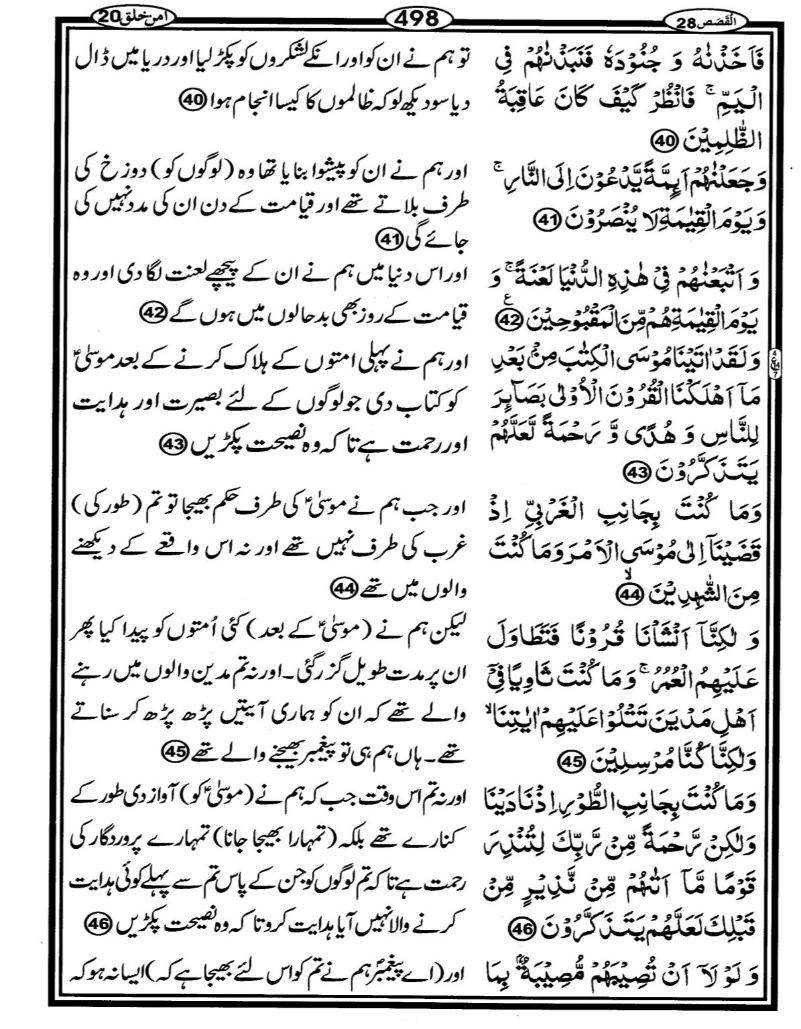 القصص 28
498
امن خلق 20
فَاَخَذْنٰهُ وَ جُنُوْدَهٗ فَنَبَذْنٰهُمْ فِی
الْیَمِّ ۚ فَانْظُرْ كَیْفَ كَانَ عَاقِبَةُ
الظّٰلِمِیْنَ 40
وَجَعَلْنٰهُمْ اَىِٕمَّةً یَّدْعُوْنَ اِلَی النَّارِ ۚ
وَیَوْمَ الْقِیٰمَةِ لَا یُنْصَرُوْنَ 41
وَ اَتْبَعْنٰهُمْ فِیْ هٰذِهِ الدُّنْیَا لَعْنَةً ۚ وَ
یَوْمَ الْقِیٰمَةِ هُمْ مِّنَ الْمَقْبُوْحِیْنَ ع 42
وَلَقَدْ اٰتَیْنَا مُوْسَی الْكِتٰبَ مِنْۢ بَعْدِ
مَاۤ اَهْلَكْنَا الْقُرُوْنَ الْاُوْلٰی بَصَآىِٕرَ
لِلنَّاسِ وَ هُدًی وَّ رَحْمَةً لَّعَلَّهُمْ
یَتَذَكَّرُوْنَ 43
وَمَا كُنْتَ بِجَانِبِ الْغَرْبِیِّ اِذْ
قَضَیْنَاۤ اِلٰی مُوْسَی الْاَمْرَ وَمَا كُنْتَ
مِنَ الشّٰهِدِیْنَ ۙ 44
وَ لٰكِنَّاۤ اَنْشَاْنَا قُرُوْنًا فَتَطَاوَلَ
عَلَیْهِمُ الْعُمُرُ ۚ وَمَا كُنْتَ ثَاوِیًا فِیْۤ
اَهْلِ مَدْیَنَ تَتْلُوْا عَلَیْهِمْ اٰیٰتِنَا ۙ
وَلٰكِنَّا كُنَّا مُرْسِلِیْنَ 45
وَمَا كُنْتَ بِجَانِبِ الطُّوْرِ اِذْ نَادَیْنَا
وَلٰكِنْ رَّحْمَةً مِّنْ رَّبِّكَ لِتُنْذِرَ
قَوْمًا مَّاۤ اَتٰىهُمْ مِّنْ نَّذِیْرٍ مِّنْ
قَبْلِكَ لَعَلَّهُمْ یَتَذَكَّرُوْنَ 46
وَ لَوْ لَاۤ اَنْ تُصِیْبَهُمْ مُّصِیْبَةٌۢ بِمَا
تو ہم نے ان کو اور انکے لشکروں کو پکڑ لیا اور دریا میں ڈال
دیا سو دیکھ لو کہ ظالموں کا کیسا انجام ہوا 40
اور ہم نے ان کو پیشوا بنایا تھا وہ (لوگوں کو) دوزخ کی
طرف بلاتے تھے اور قیامت کے دن ان کی مدد نہیں کی
جائے گی 41
اور اس دنیا میں ہم نے ان کے پیچھے لعنت لگا دی اور وہ
قیامت کے روز بھی بدحالوں میں ہوں گے 42
اور ہم نے پہلی امتوں کے ہلاک کرنے کے بعد موسیٰؑ
کو کتاب دی جو لوگوں کے لئے بصیرت اور ہدایت
اور رحمت ہے تاکہ وہ نصیحت پکڑیں 43
اور جب ہم نے موسیٰؑ کی طرف حکم بھیجا تو تم (طور کی)
غرب کی طرف نہیں تھے اور نہ اس واقعے کے دیکھنے
والوں میں تھے 44
لیکن ہم نے (موسیٰؑ کے بعد) کئی اُمتوں کو پیدا کیا پھر
ان پر مدت طویل گزر گئی۔ اور نہ تم مدین والوں میں رہنے
والے تھے کہ ان کو ہماری آیتیں پڑھ پڑھ کر سناتے
تھے۔ ہاں ہم ہی تو پیغمبر بھیجنے والے تھے 45
اور نہ تم اس وقت جب کہ ہم نے (موسیٰؑ کو) آواز دی طور کے
کنارے تھے بلکہ (تمہارا بھیجا جانا) تمہارے پروردگار کی
رحمت ہے تاکہ تم لوگوں کو جن کے پاس تم سے پہلے کوئی ہدایت
کرنے والا نہیں آیا ہدایت کرو تاکہ وہ نصیحت پکڑیں 46
اور (اے پیغمبرؐ ہم نے تم کو اس لئے بھیجا ہے کہ) ایسا نہ ہو کہ